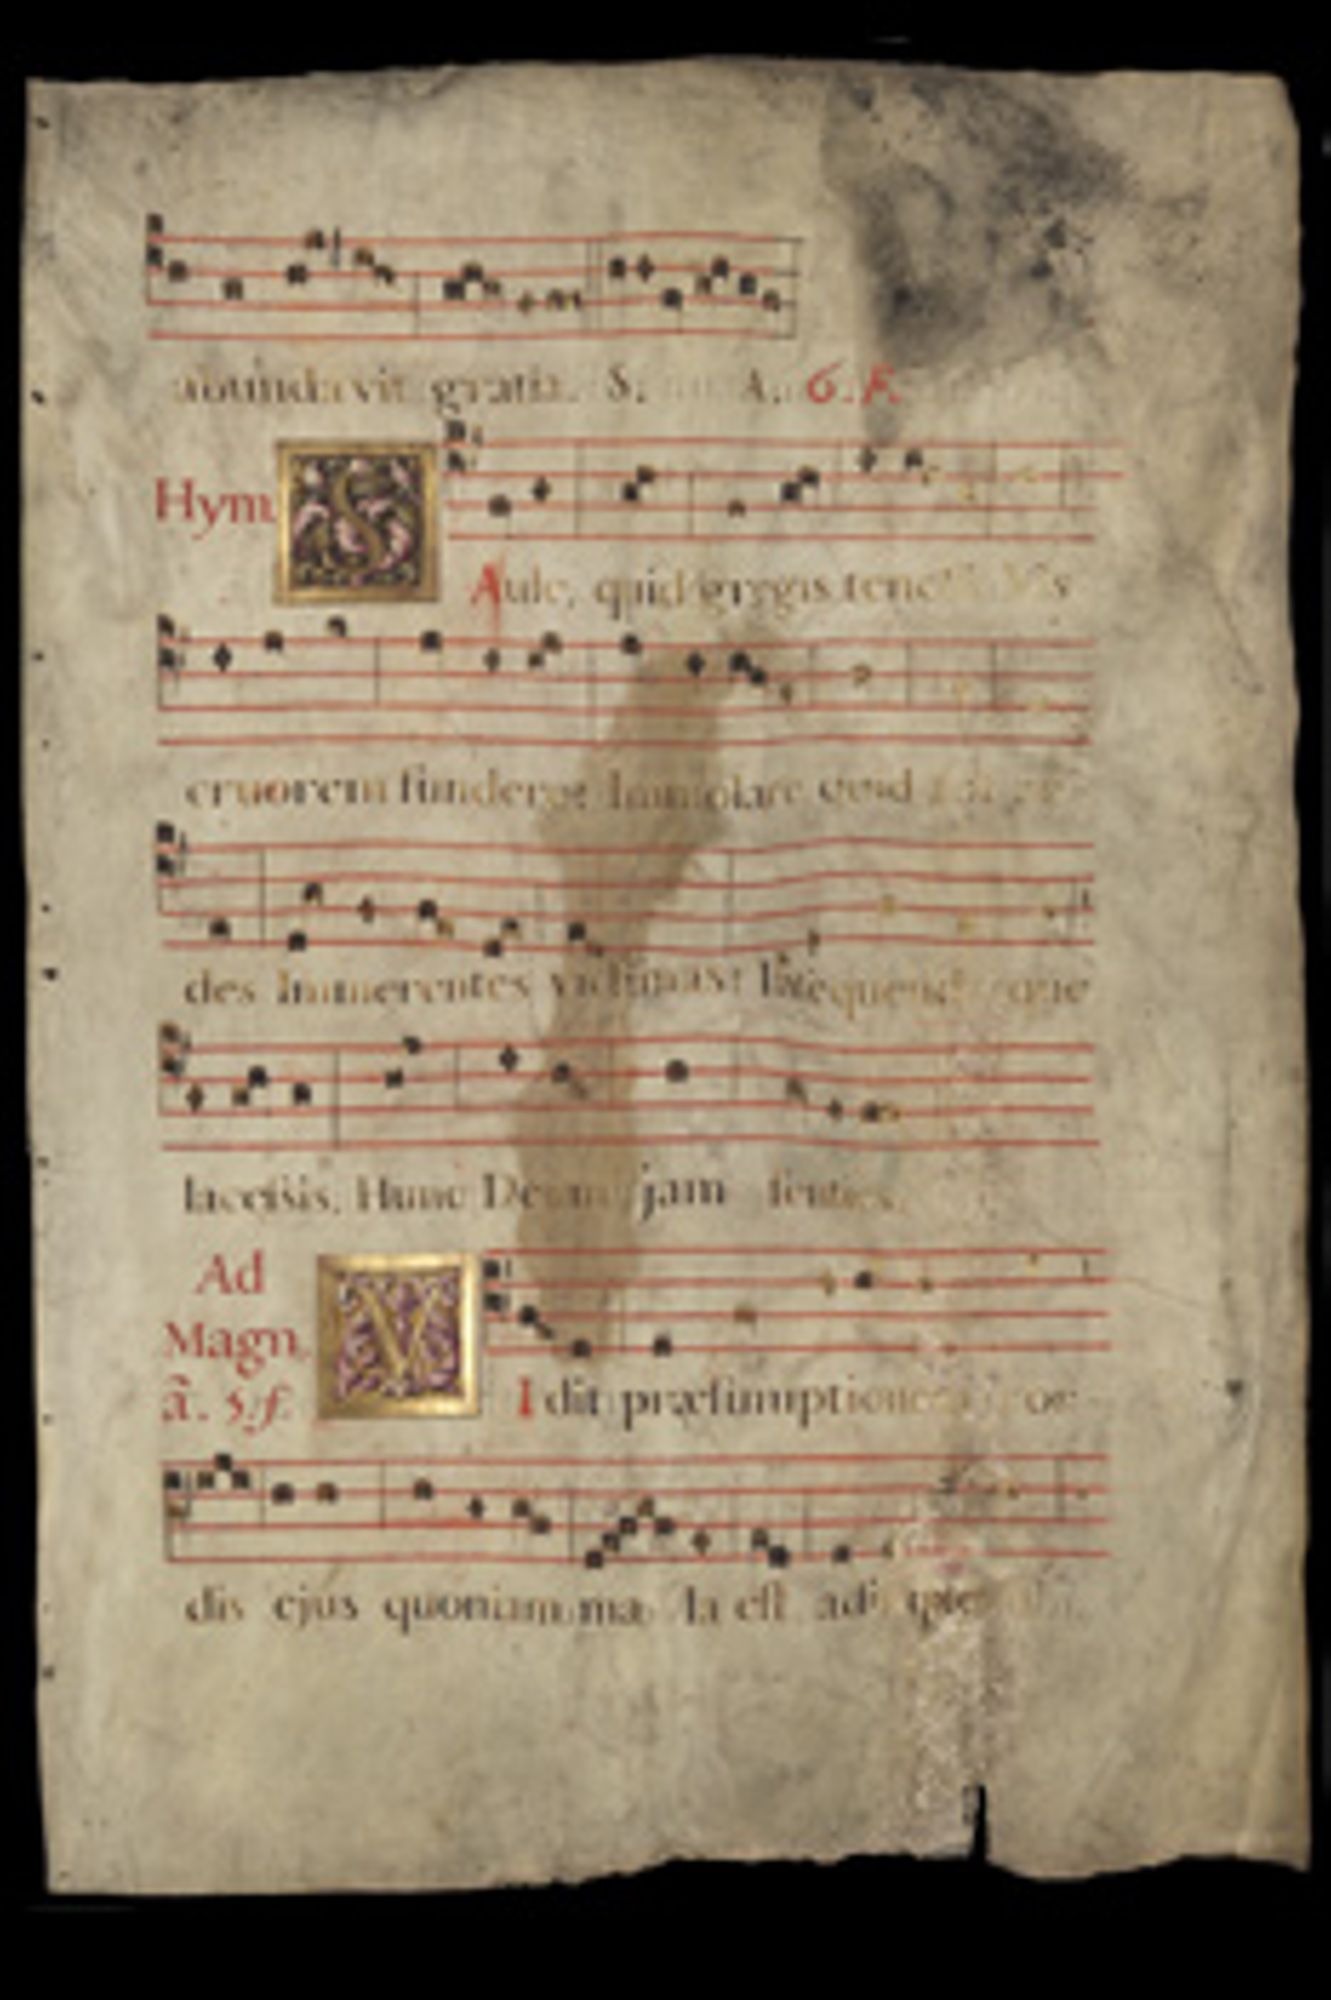 abundavit gratia. S. A. 6. F.
Hym. SAule, quid gregis tenelli Vis
cruorem fundere? Immolare quid
des Immerentes victimas?
lacessis, Hunc Deum jam
Ad Magn. ã. 5. f. VIdit præsumptionem cor-
dis ejus quoniam ma la est adi